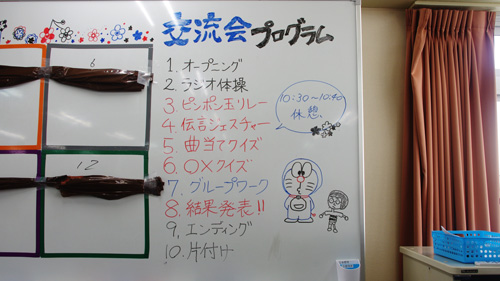 交流会プログラム
1. オープニング
2. ラジオ体操
3. ピンポン玉リレー
4. 伝言ジェスチャー
5. 曲当てクイズ
6. ○×クイズ
7. グループワーク
8. 結果発表!!
9. エンディング
10. 片付け
10:30~10:40
休憩
6
12